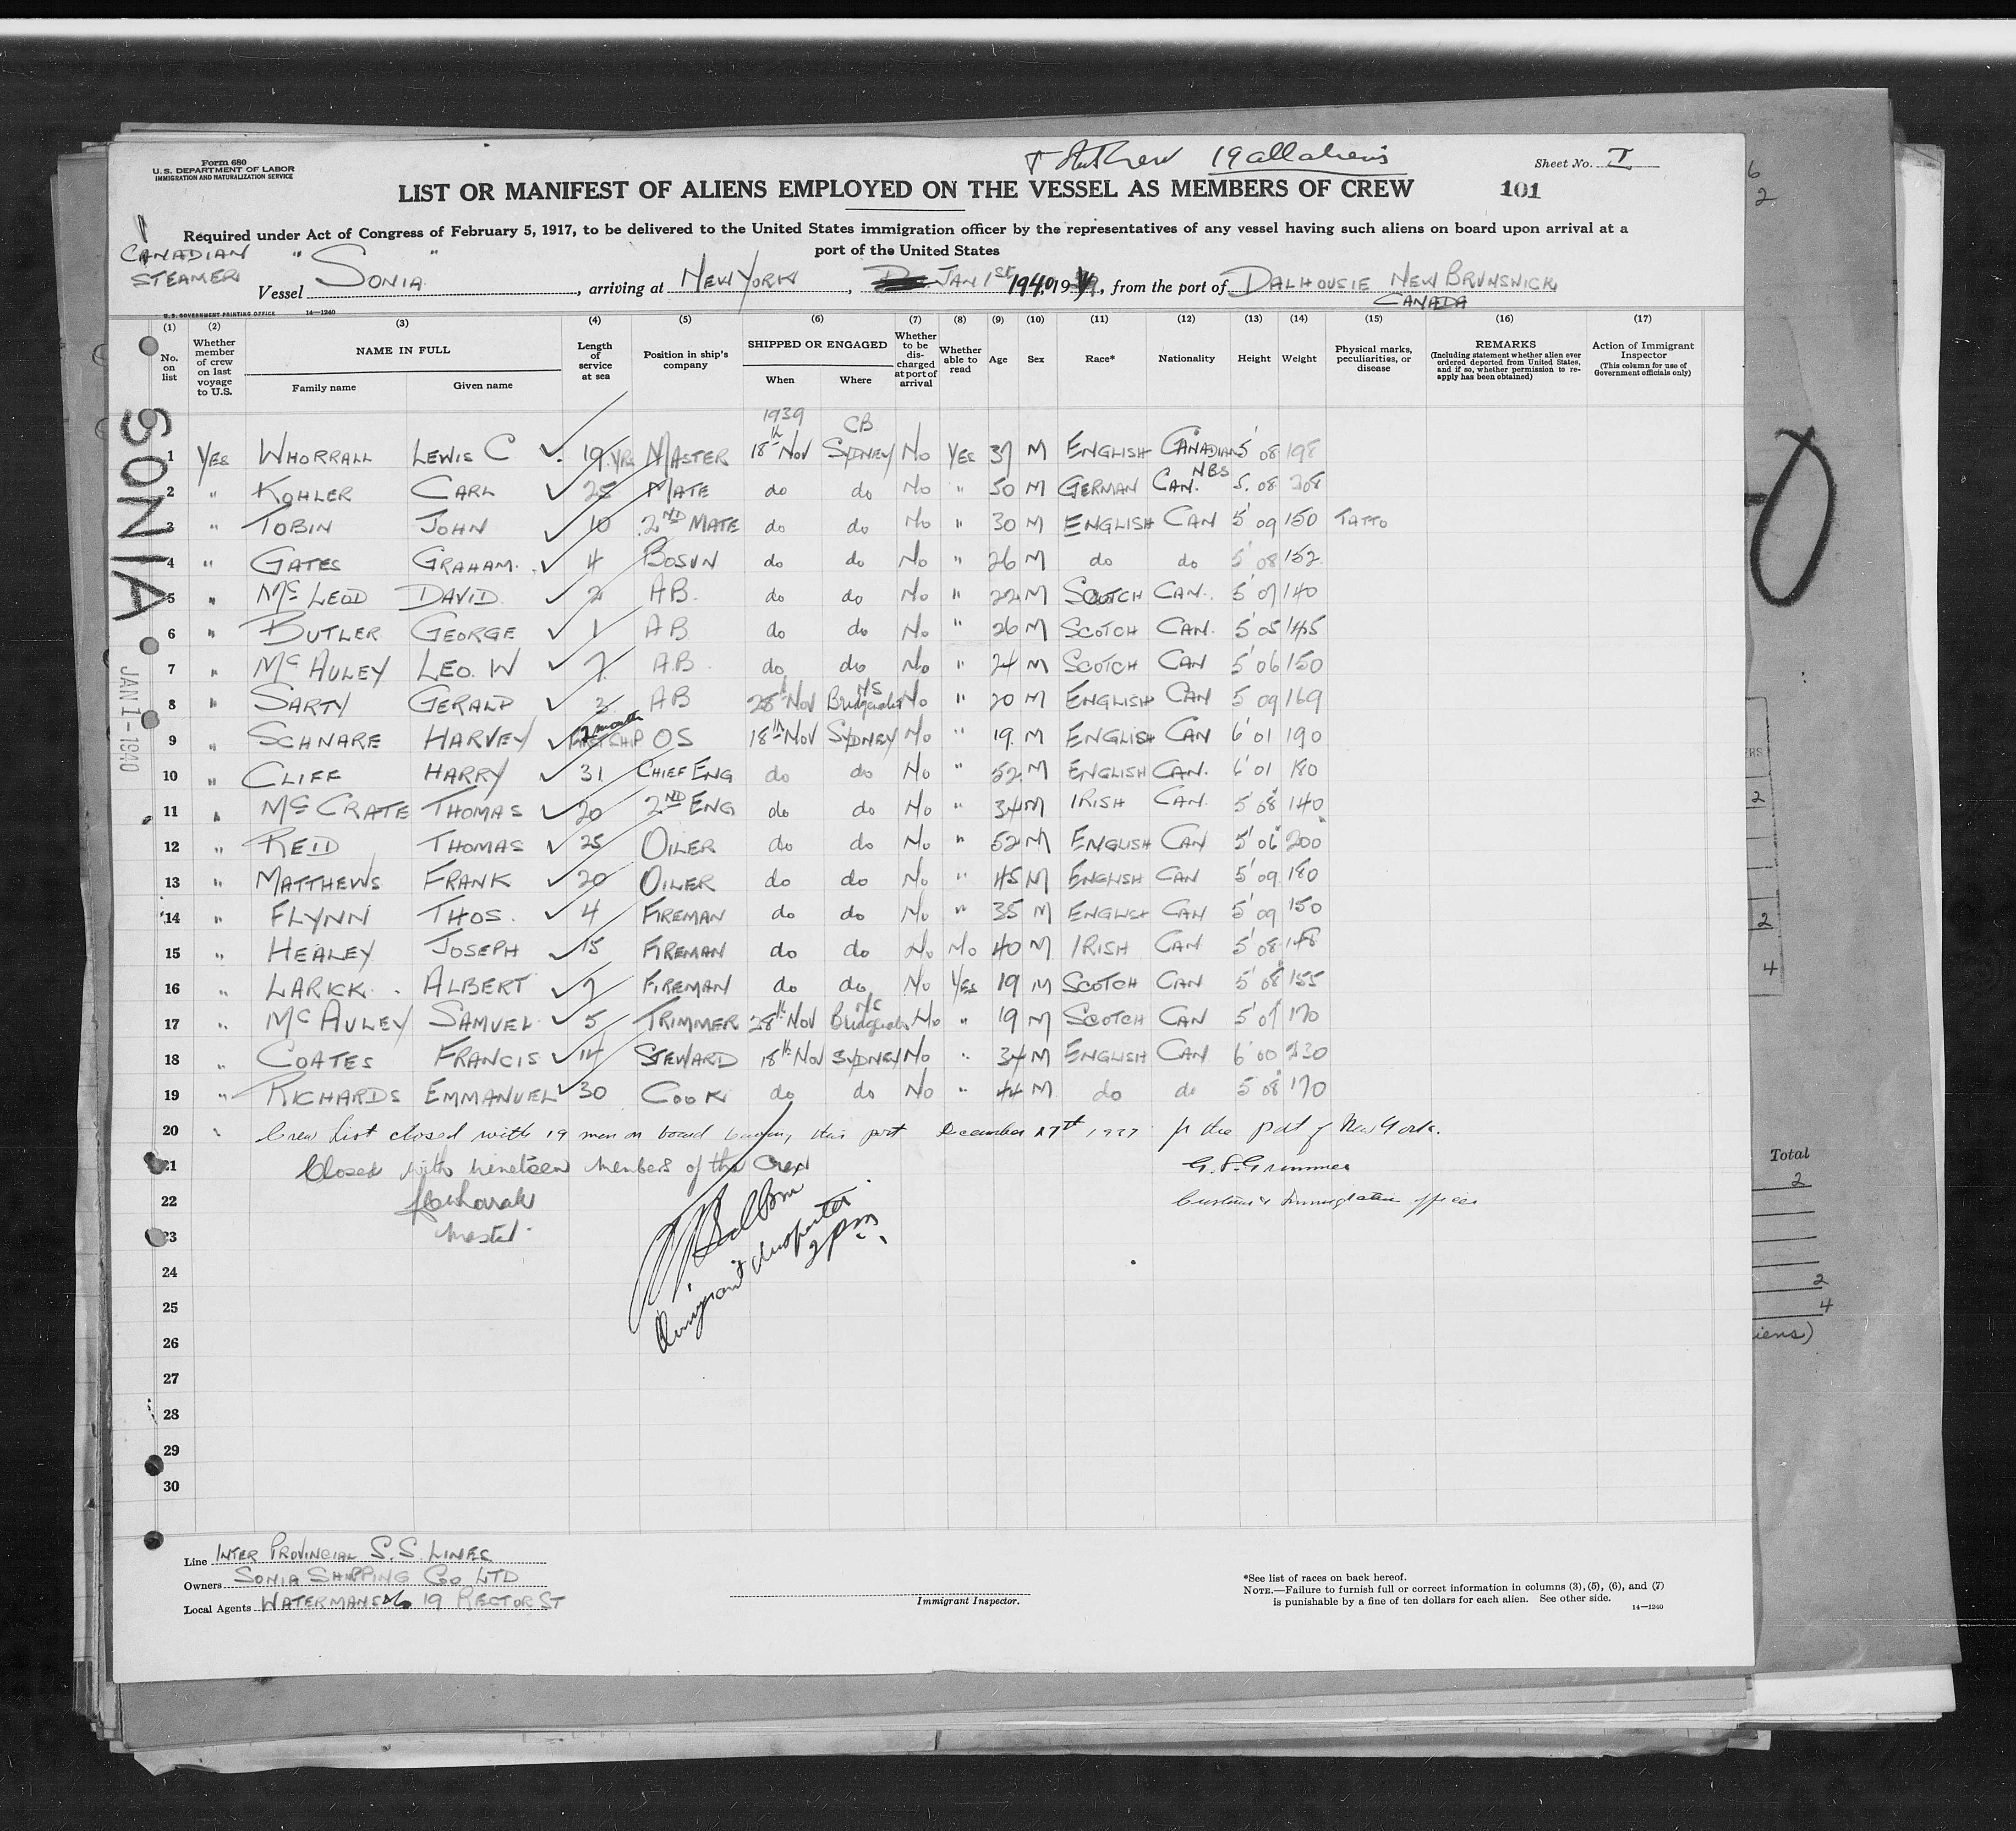 Form 680
U.S. DEPARTMENT OF LABOR
IMMIGRATION AND NATURALIZATION SERVICE
19 all aliens
Sheet No. I
LIST OR MANIFEST OF ALIENS EMPLOYED ON THE VESSEL AS MEMBERS OF CREW
101
Required under Act of Congress of February 5, 1917, to be delivered to the United States immigration officer by the representatives of any vessel having such aliens on board upon arrival at a
port of the United States
CANADIAN
STEAMER
Vessel "SONIA", arriving at NEW YORK, JAN 1st 1940, from the port of DALHOUSIE NEW BRUNSWICK
CANADA
U.S. GOVERNMENT PRINTING OFFICE 14—1240
(1) (2) (3) (4) (5) (6) (7) (8) (9) (10) (11) (12) (13) (14) (15) (16) (17)
No. on list
Whether member of crew on last voyage to U.S.
NAME IN FULL
Family name Given name
Length of service at sea
Position in ship's company
SHIPPED OR ENGAGED
When Where
Whether to be discharged at port of arrival
Whether able to read
Age
Sex
Race*
Nationality
Height
Weight
Physical marks, peculiarities, or disease
REMARKS
(Including statement whether alien ever ordered deported from United States, and if so, whether permission to re-apply has been obtained)
Action of Immigrant Inspector
(This column for use of Government officials only)
1939 CB
1 YES WHORRALL LEWIS C 19 YRS MASTER 18th NOV SYDNEY NO YES 37 M ENGLISH CANADIAN 5' 08 198
NBS
2 " KOHLER CARL 25 MATE do do No " 50 M GERMAN CAN. 5. 08 208
3 " TOBIN JOHN 10 2ND MATE do do No " 30 M ENGLISH CAN 5' 09 150 TATTO
4 " GATES GRAHAM. 4 BOSUN do do No " 26 M do do 5' 08 152
5 " McLEOD DAVID 2 AB. do do No " 22 M SCOTCH CAN. 5' 07 140
6 " BUTLER GEORGE 1 AB do do No " 26 M SCOTCH CAN. 5' 05 145
7 " McAULEY LEO. W 7 AB. do do No " 24 M SCOTCH CAN 5' 06 150
8 " SARTY GERALD 3 AB 28th Nov Bridgewater NS No " 20 M ENGLISH CAN 5 09 169
9 " SCHNARE HARVEY 2 month FIRST SHIP OS 18th NOV SYDNEY No " 19. M ENGLISH CAN 6' 01 190
10 " CLIFF HARRY 31 CHIEF ENG do do No " 52. M ENGLISH CAN. 6' 01 180
11 " McCRATE THOMAS 20 2ND ENG do do No " 34 M IRISH CAN. 5' 08 140
12 " REID THOMAS 25 OILER do do No " 52 M ENGLISH CAN 5' 06 200
13 " MATTHEWS FRANK 20 OILER do do No " 45 M ENGLISH CAN 5' 09 180
14 " FLYNN THOS. 4 FIREMAN do do No " 35 M ENGLISH CAN 5' 09 150
15 " HEALEY JOSEPH 15 FIREMAN do do No No 40 M IRISH CAN 5' 08 148
16 " LARKK. ALBERT 7 FIREMAN do do No YES 19 M SCOTCH CAN 5' 08 155
17 " McAULEY SAMUEL 5 TRIMMER 28th Nov Bridgewater No " 19 M SCOTCH CAN 5' 07 170
18 " COATES FRANCIS 14 STEWARD 18th NOV SYDNEY No " 34 M ENGLISH CAN 6' 00 230
19 " RICHARDS EMMANUEL 30 COOK do do No " 44 M do do 5 08 170
20 Crew list closed with 19 men on board leaving this port December 27th for the port of New York.
21 Closed with nineteen members of the Crew G. S. Grimmer
22 Customs & Immigration officer
23 Master
Immigrant Inspector
2 pm
24
25
26
27
28
29
30
SONIA
JAN 1-1940
Line INTER PROVINCIAL S.S. LINES
Owners SONIA SHIPPING CO LTD
Local Agents WATERMANS & Co 19 RECTOR ST
Immigrant Inspector.
*See list of races on back hereof.
NOTE.—Failure to furnish full or correct information in columns (3), (5), (6), and (7)
is punishable by a fine of ten dollars for each alien. See other side.
14—1240
6
2
ERS
2
2
4
Total
2
2
4
iens)